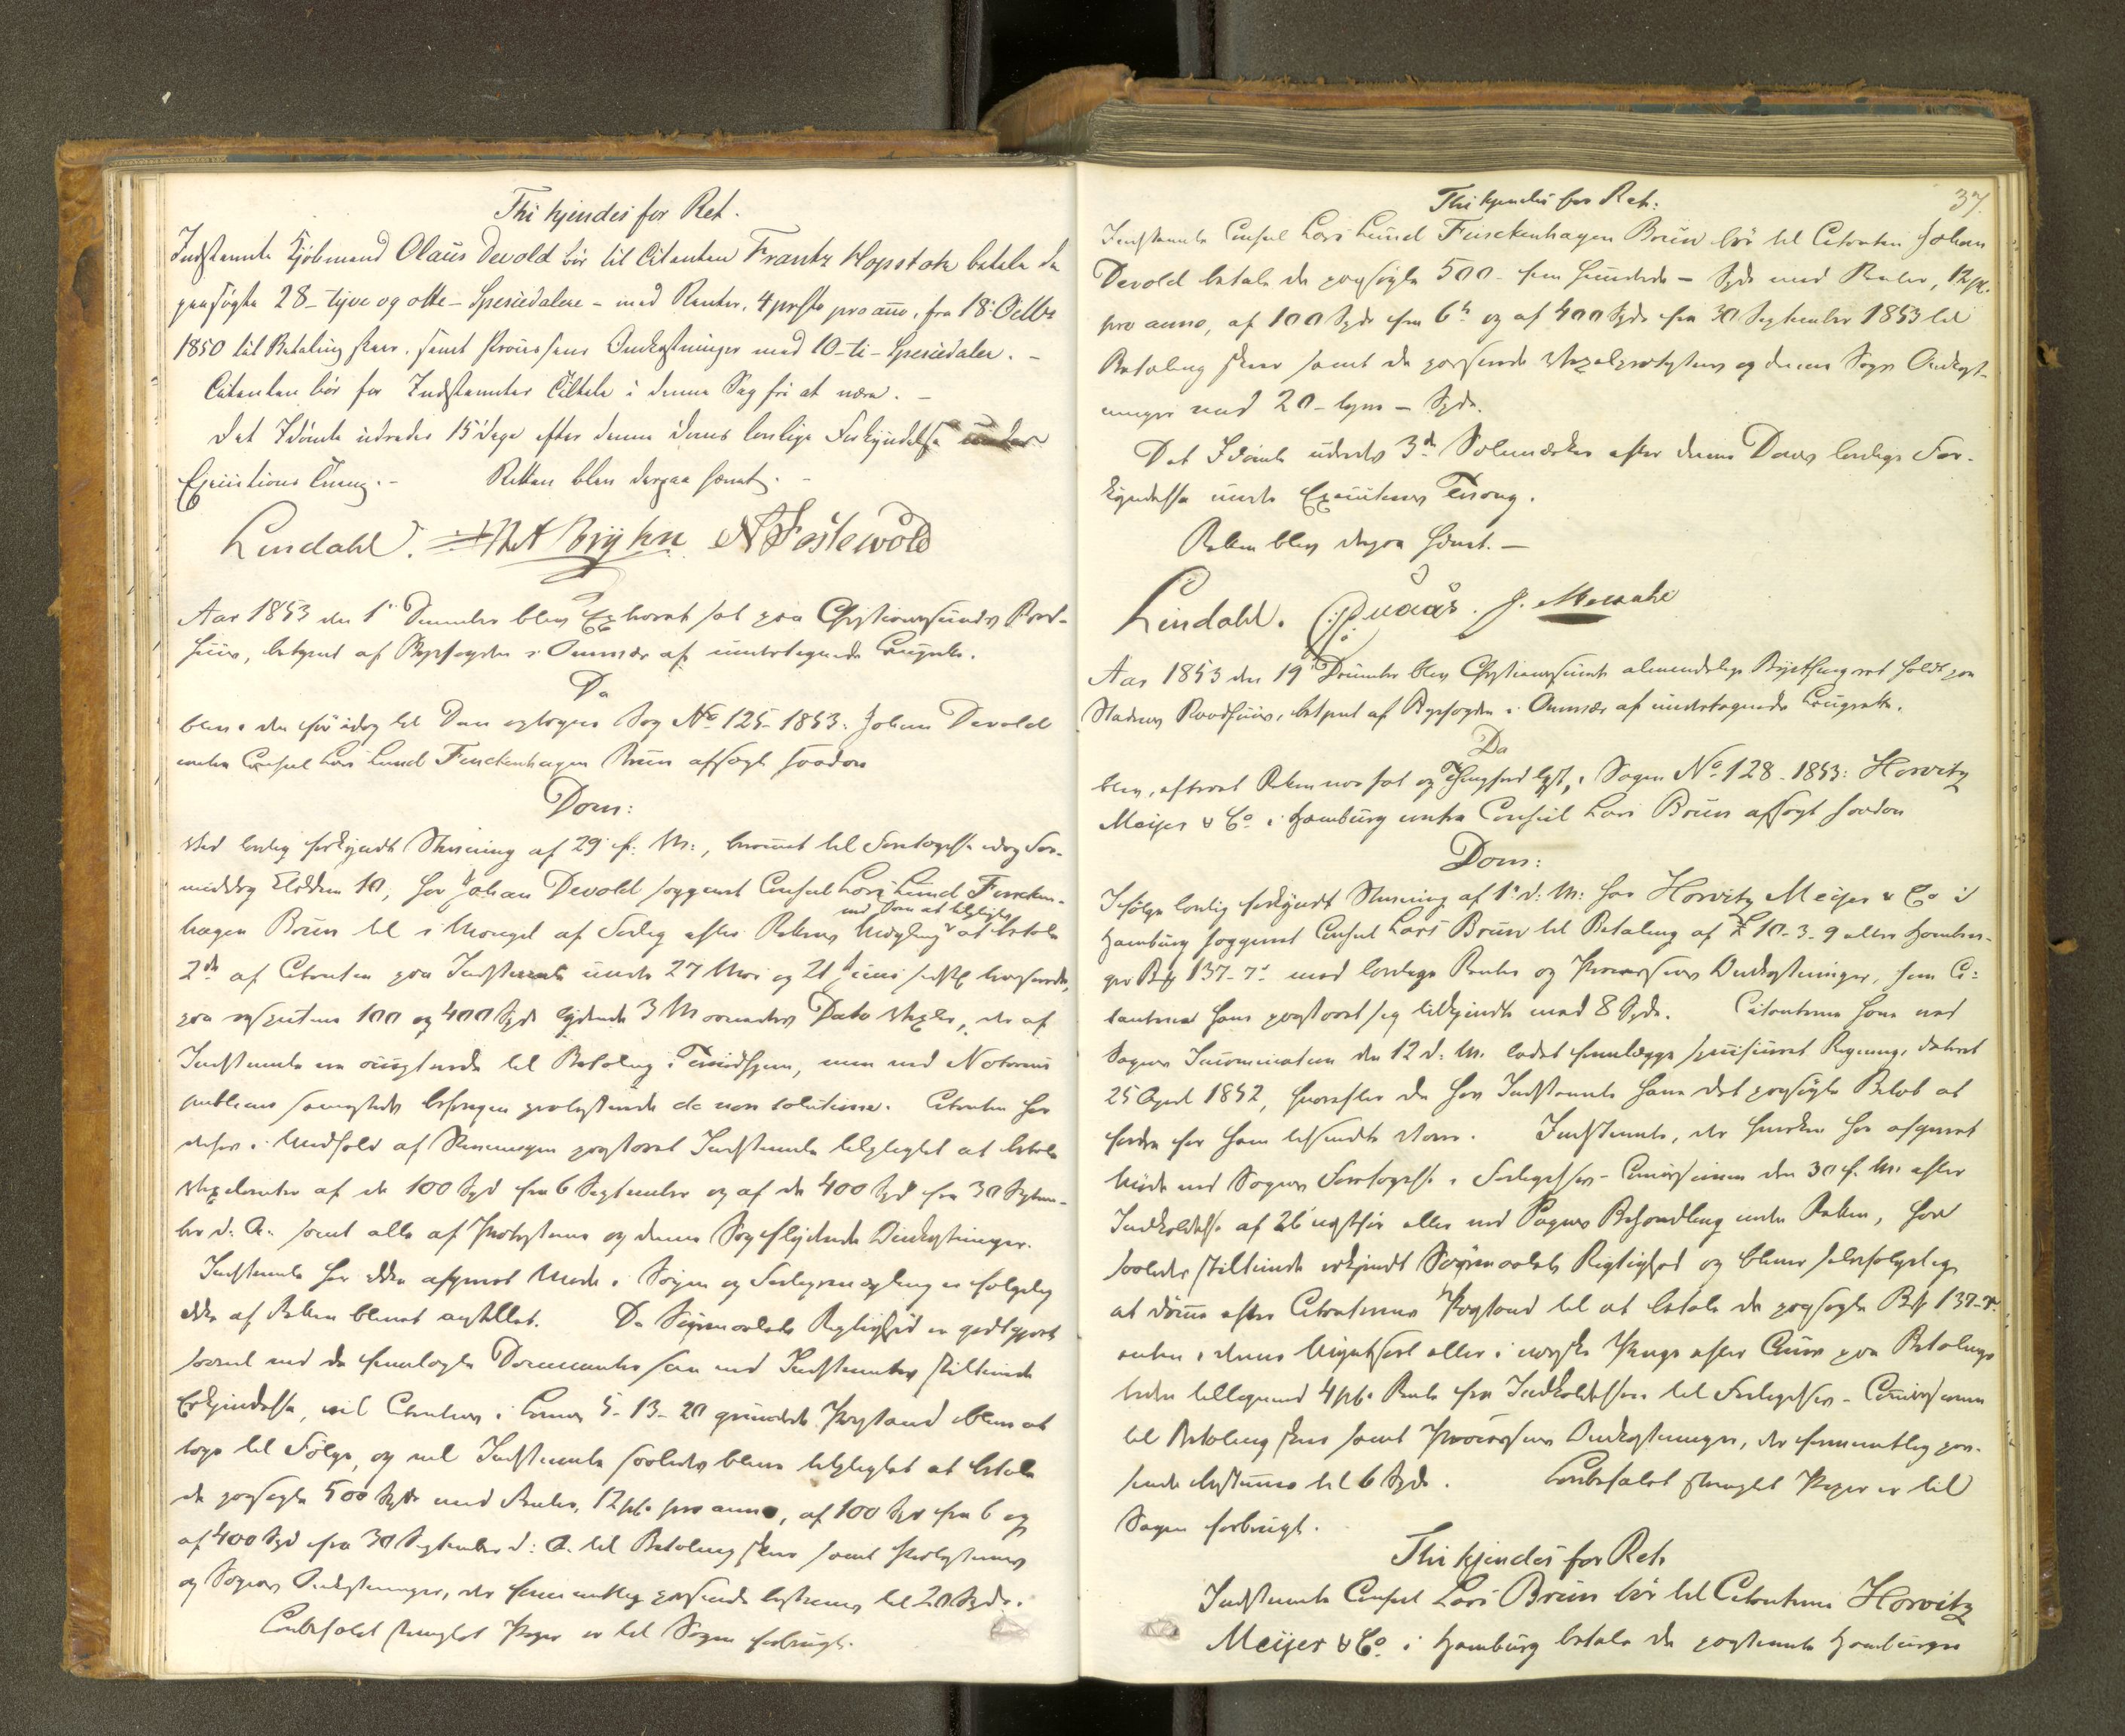 Thi kjendes for Ret.
Indstevnte Kjøbmand Olaus Devold bør til Citanten Frantz Klopstok betale de
paasøgte 28 - tyve og otte - Speciedalere - med Renter, 4 prCto pro anno, fra 18 Octbr
1850 til Betaling skeer, samt Processens Omkostninger med 10 - ti - Speciedaler. -
Citanten bør for Indstevntes Tiltale i denne Sag fri at være. -
Det Idømte udredes 15 Dage efter denne Doms lovlige Forkyndelse under
Executions Tvang. - Retten blev derpaa hævet. -
Lindahl. Bryhn N Fostewold
Aar 1853 den 1 December blev Extraret sat paa Christianssunds Raad-
huus, betjent af Byfogden i Overvær af undertegnede Laugrette.
Da
blev i den før idag til Dom optagne Sag No 125-1853: Johan Devold
contra Consul Lars Lund Finckenhagen Brun afsagt saadan
Dom:
Ved lovlig forkyndt Stevning af 29 f. M., berammet til Foretagelse idag For-
middag Klokken 10, har Johan Devold sagsøgt Consul Lars Lund Fincken-
ved Dom at tilpligtes
hagen Brun til i Mangel af Forlig efter Rettens Mægling at betale
2de af Citanten paa Indstevnte under 27 Mai og 21 Juni sidstl. trasserede,
paa respective 100 og 400 Spd lydende 3 Maaneders Dato Vexler, der af
Indstevnte ere accepterede til Betaling i Trondhjem, men ved Notarius
publicus sammesteds befunden protesterede de non solutione. Citanten har
derhos i Medhold af Stevningen paastaaet Indstevnte tilpligtet at betale
Vexelrenter af de 100 Spd fra 6 September og af de 400 Spd fra 30 Septem-
ber d. A. samt alle af Protesterne og denne Sag flydende Omkostninger.
Indstevnte har ikke afgivet Møde i Sagen og Forligsmægling er følgelig
ikke af Retten blevet anstillet. Da Søgsmaalets Rigtighed er godtgjort
saavel ved de fremlagte Documenter som ved Indstevntes stiltiende
Erkjendelse, vil Citantens i Lovens 5-13-20 grundede Paastand blive at
tage til Følge, og vil Indstevnte saaledes blive tilpligtet at betale
de paasøgte 500 Spd med Renter, 12 pCt. pro anno, af 100 Spd fra 6 og
af 400 Spd fra 30 September d: A. til Betaling skeer samt Protesternes
og Sagens Omkostninger, der sammenlagt passende bestemmes til 20 Spd.
Lovbefalet stemplet Papir er til Sagen forbrugt.
37.
Thi kjendes for Ret:
Indstevnte Consul Lars Lund Finckenhagen Brun bør til Citanten Johan
Devold betale de paasøgte 500 - fem hundrede - Spd. med Renter, 12 pCt.
pro anno, af 100 Spd. fra 6te og af 400 Spd. fra 30 September 1853 til
Betaling skeer samt de paaførende Vexelprotesters og denne Sags Omkost-
ninger med 20 - tyve - Spd.
Det Idømte udredes 3de Solemærker efter denne Doms lovlige For-
kyndelse under Executions Tvang.
Retten blev derpaa hævet. -
Lindahl.
Aar 1853 den 19 December blev Christianssunds almindelige Bything ret holdt paa
Stadens Raadhuus, betjent af Byfogden i Overvær af undertegnede Laugrette.
Da
blev, efterat Retten var sat og Thingfred lyst, i Sagen No 128-1853: Horvitz
Meijer & Co i Hamburg contra Consul Lars Brun afsagt saadan
Dom:
Ifølge lovlig forkyndt Stevning af 1 d: M: har Horvitz Meijer & Co i
Hamburg sagsøgt Consul Lars Brun til Betaling af £ 10-3-9 eller Hambur-
ger B# 137-7 med lovlige Renter og Processens Omkostninger, som Ci-
tanterne have paastaaet sig tilkjendte med 8 Spd. Citanterne have ved
Sagens Incamination den 12 d: M. ladet fremlægge specificeret Regning, dateret
25 April 1852, hvorefter de hos Indstevnte have det paasøgte Beløb at
fordre for ham tilsendte Varer. Indstevnte, der hverken har afgivet
Møde ved Sagens Foretagelse i Forligelses-Commissionen den 30 f. M. efter
Indkaldelse af 26 næstfør eller ved Sagens Behandling under Retten, har
saaledes stiltiende erkjendt Søgsmaalets Rigtighed og bliver selvfølgelig
at dømme efter Citanternes Paastand til at betale de paasøgte B# 137-7
enten i denne Myntsort eller i norske Penge efter Cours paa Betalings
tiden tilligemed 4 pCt. Rente fra Indkaldelsen til Forligelses-Commissionen
til Betaling skeer samt Processens Omkostninger, der sammenlagt pas-
sende bestemmes til 6 Spd. Lovbefalet stemplet Papir er til
Sagen forbrugt.
Thi kjendes for Ret:
Indstevnte Consul Lars Brun bør til Citanterne Horvitz
Meijer & Co i Hamburg betale de paastevnte Hamburger